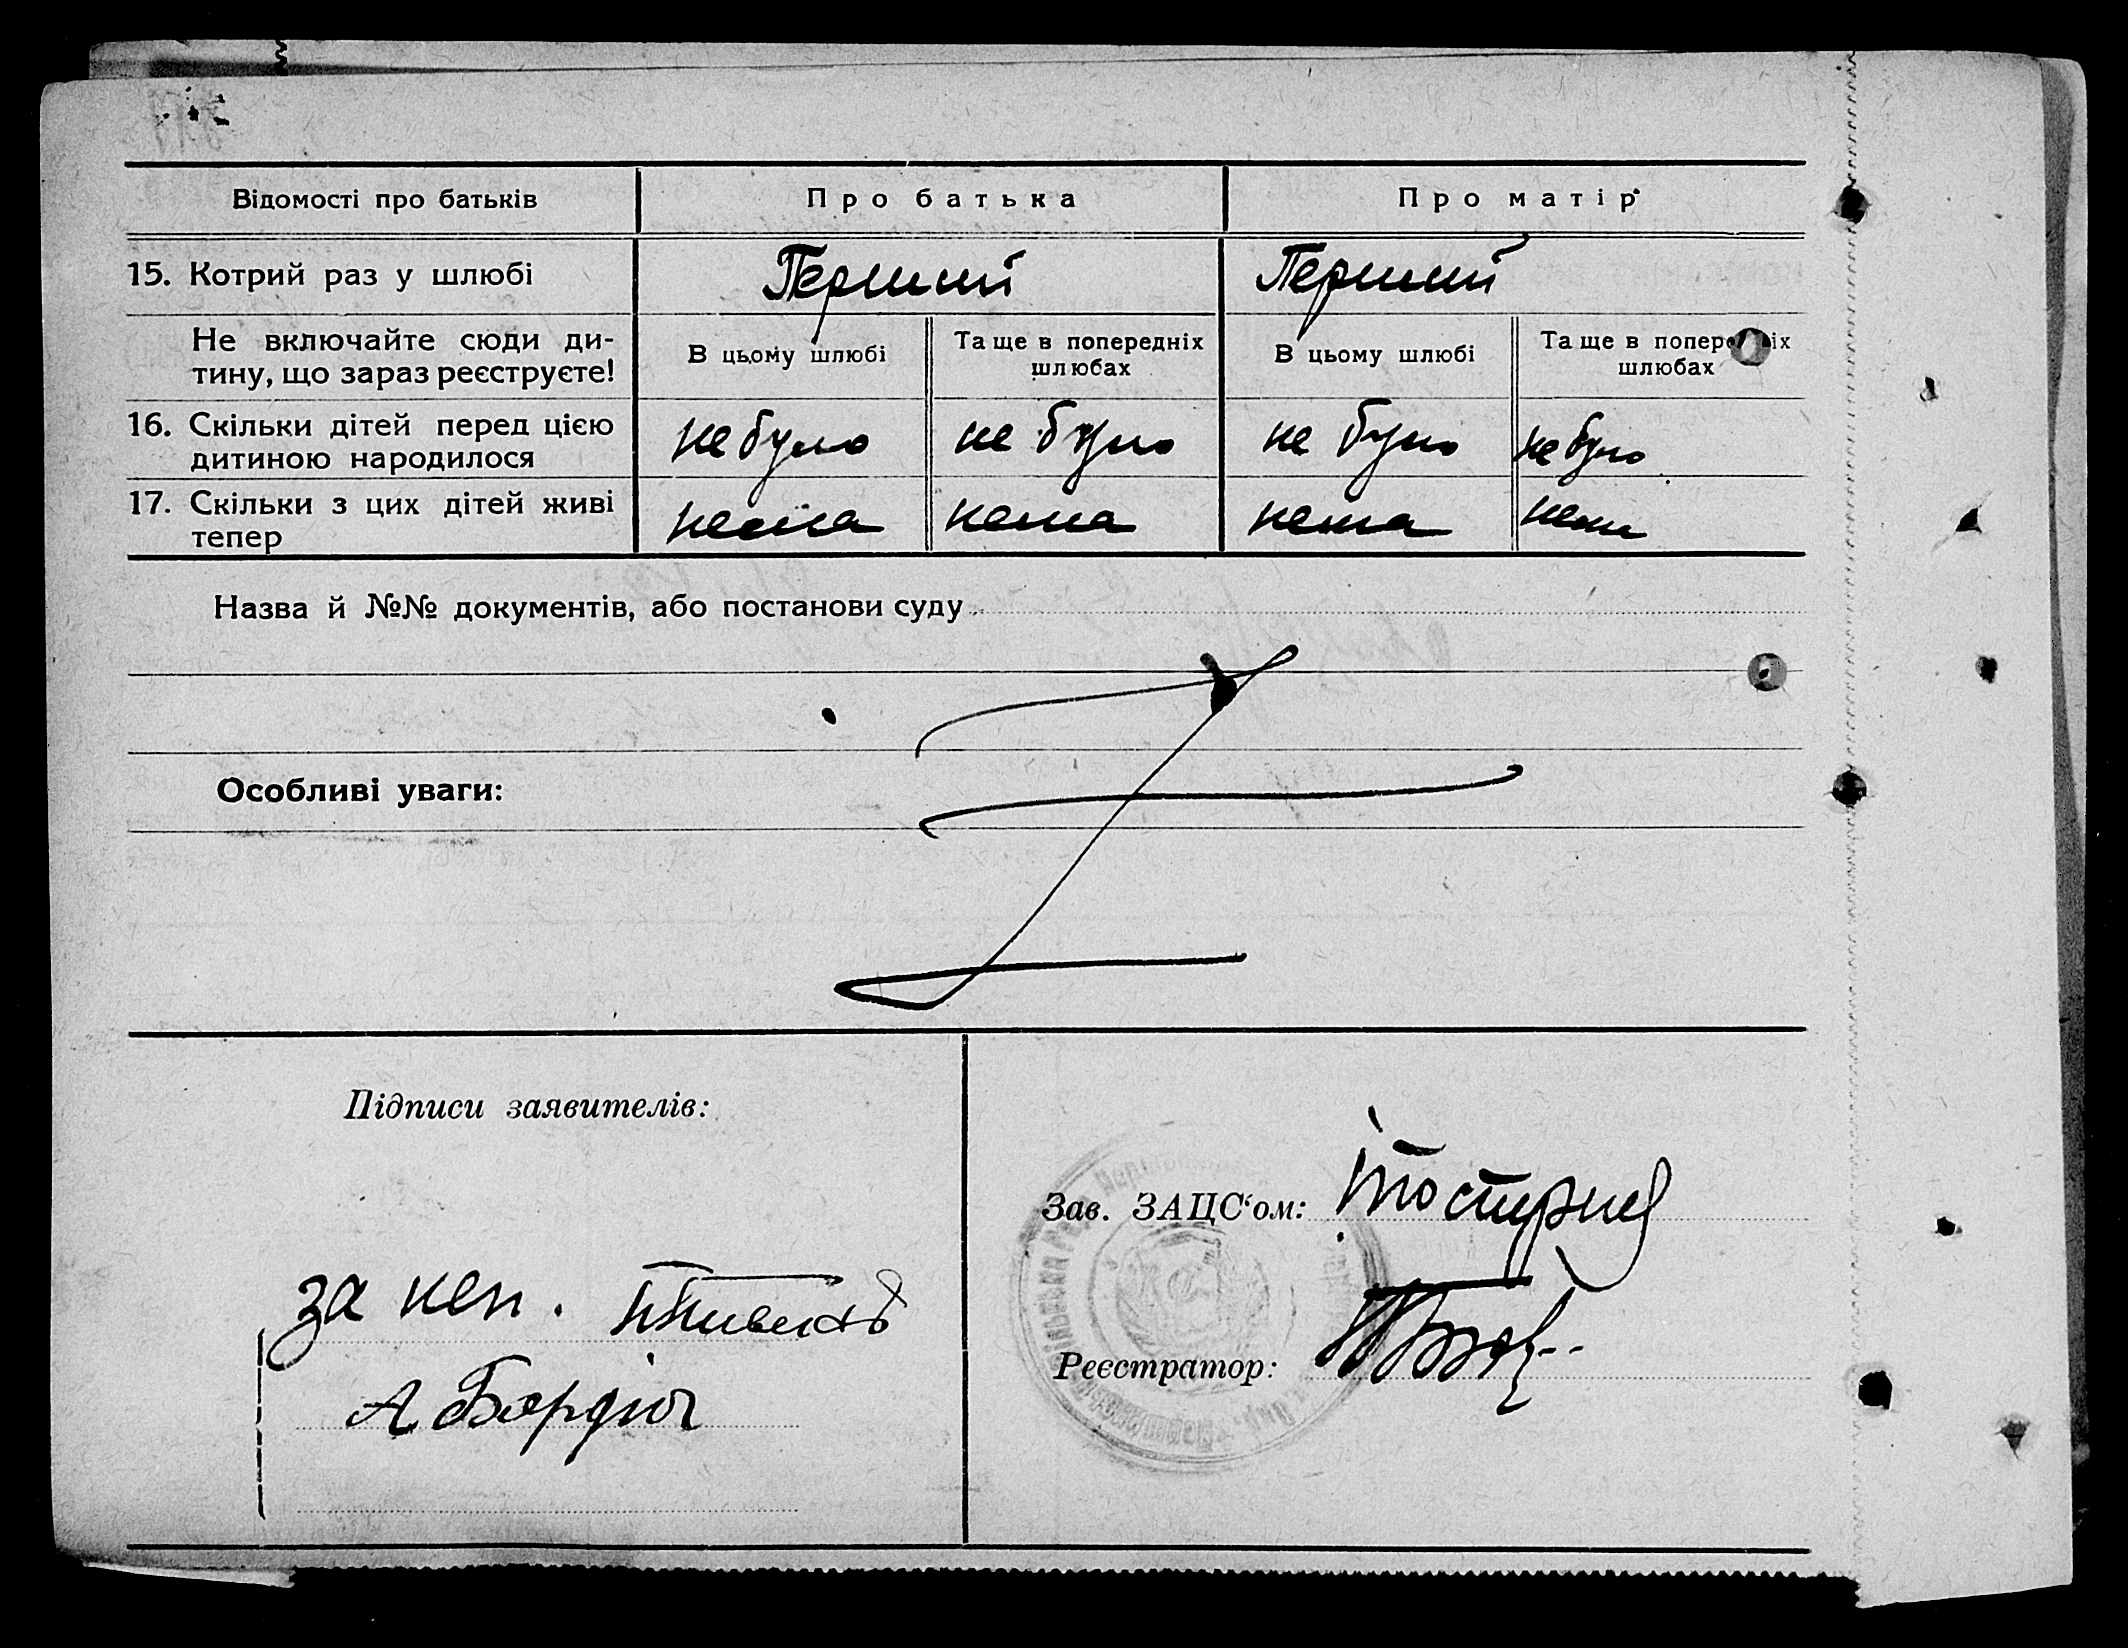 Відомості про батьків Про батька Про матір
15. Котрий раз у шлюбі Перший Перший
Не включайте сюди ди-
тину, що зараз реєструєте!
В цьому шлюбі Та ще в попередніх
шлюбах
В цьому шлюбі Та ще в попередніх
шлюбах
16. Скільки дітей перед цією
дитиною народилося
не було не було не було не було
17. Скільки з цих дітей живі
тепер
нема нема нема нема
Назва й №№ документів, або постанови суду
Особливі уваги:
Підписи заявителів:
Зав. ЗАЦС'ом:
за неп.
Реєстратор:
А Бордюг